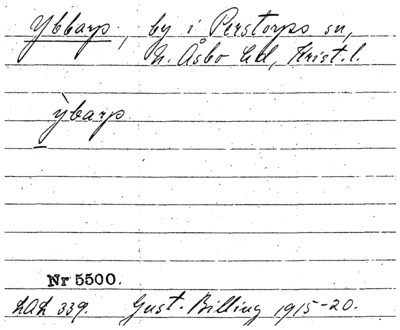 Ybbarp, by i Perstorps sn,
N. Åsbo hd, Krist. l.
ỳbarp
Nr 5500.
LAL 339. Gust. Billing 1915-20.